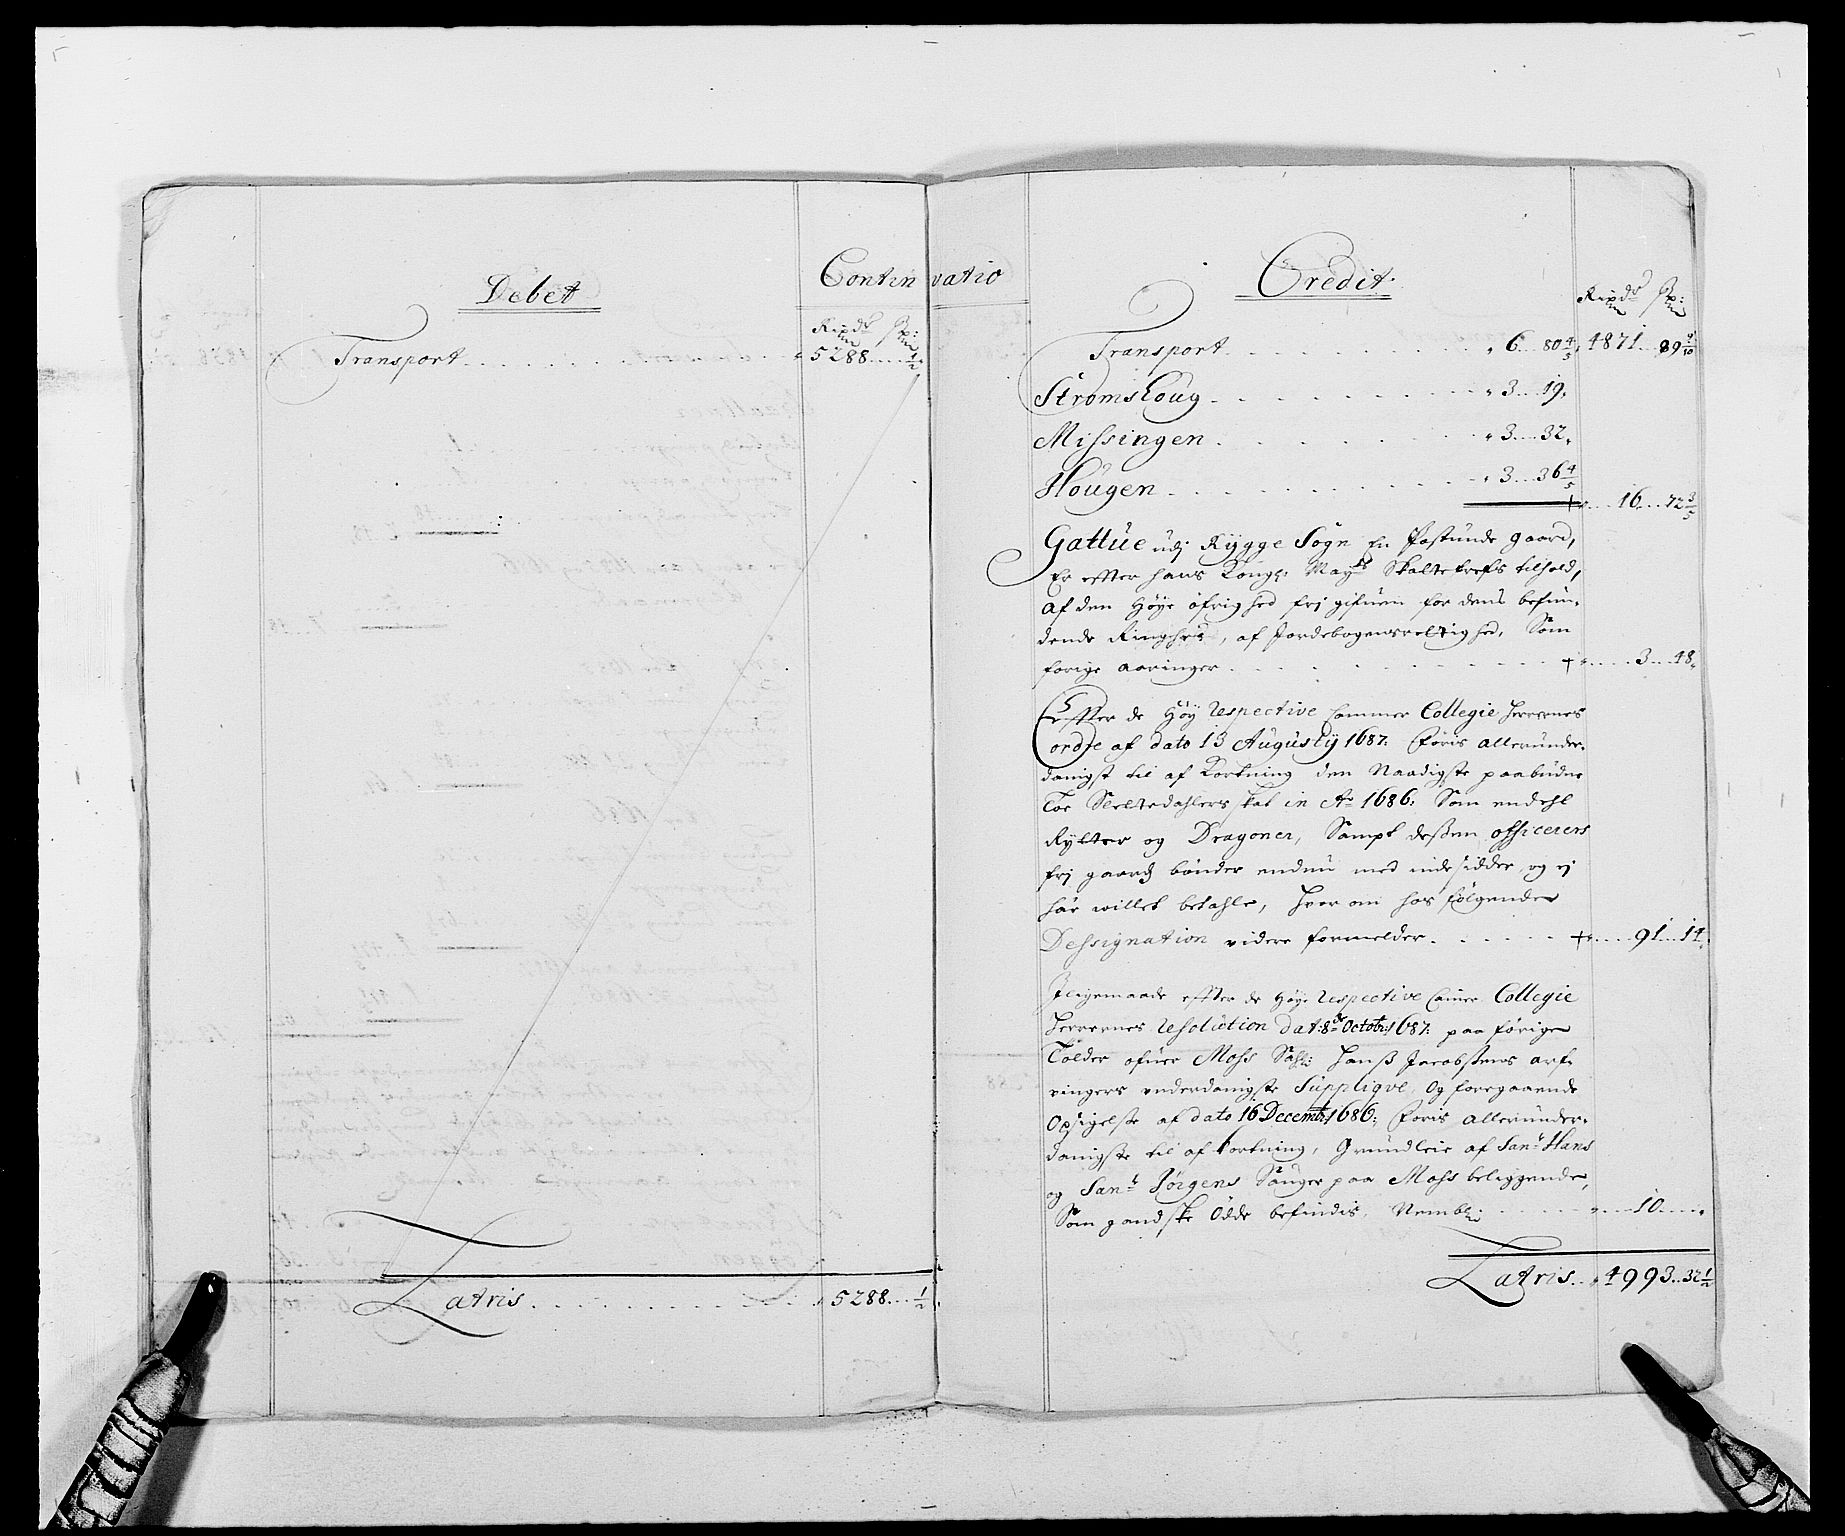 Debet
Continuatio
Rixdr ß:
Transport . . . . . . . . 5288 .... 1/2
Latris . . . . . . . . . . 5288 ... 1/2
Credit
Rixdr ß:
Transport . . . . . . . . 6 ... 80 4/5 4871 ... 89 9/10
Strømshoug . . . . . . . 3 ... 19.
Missingen . . . . . . . 3 ... 32.
Hougen . . . . . . . . 3 ... 36 4/5
+ .... 16 ... 72 3/5
Gattüe udj Rygge Sogn En gaard,
Er efter hans Kongl: Mayts tilhold,
af den Høye øfrighed frj gifuen for dens befin-
dende Ringhed, af Jordebogens rettighed, Som
forige aaringer . . . . . . . + .... 3 ... 48.
Effter de Høy Respective Cammer Collegie Herrernes
ordre af dato 13 Augustij 1687. føris allerunder-
danigst til af Kortning den Naadigste paabudne
Toe Slettedahlers skat in Ao 1686: Som endehl
Rytter og Dragoner, Sampt deßen officerers
frj gaards bønder endnu med inde sidder, og ej
har willet betahle, hvor om hos følgende
Dessignation videre formelder . . . . . + .... 91 ... 14.
Iligemaade effter de Høye Respective Camer Collegie
Herrernes Resolution dat: 8de Octobr: 1687. paa forige
Tolder ofuer Moss Sahl: Hanß Jacobßens arf-
vingers vnderdanigste Suppliqve, Og foregaaende
Opsigelse af dato 16 Decembr: 1686: føris allerunder-
danigste til af kortning, Grundleie af Sanr Hans
og Sanr Jørgens Sauger paa Moss beliggende,
Som gandske Øde befindis, Nembl: . . . . . .... 10 .....
Latris . . 4993 .. 32 1/2